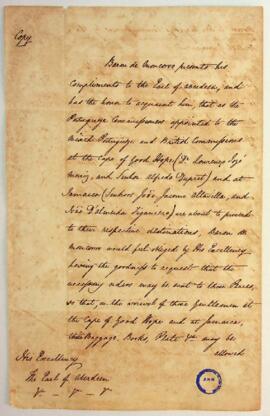 Copy
Baron de Moncorvo presents his
Compliments to the Earl of Aberdeen, and
has the honor to acquaint him, that as the
Portuguese Commissioners appointed to the
Mixed Portuguese and British Commissions
at the Cape of Good Hope (Dr Lourenço José
Moniz, and Senhor Alfredo Duprat) and at
Jamaica (Senhors João Jacome
and
João D'Almeida) are about to proceed
to their respective destinations, Baron de
Moncorvo would feel obliged by His Excellency
having the goodness to request that the
necessary orders may be sent to those Places,
so that, on the arrival of those Gentlemen at
the Cape of Good Hope and at Jamaica,
their Baggage, Books, Plate &ca may be
allowed
His Excellency
The Earl of Aberdeen